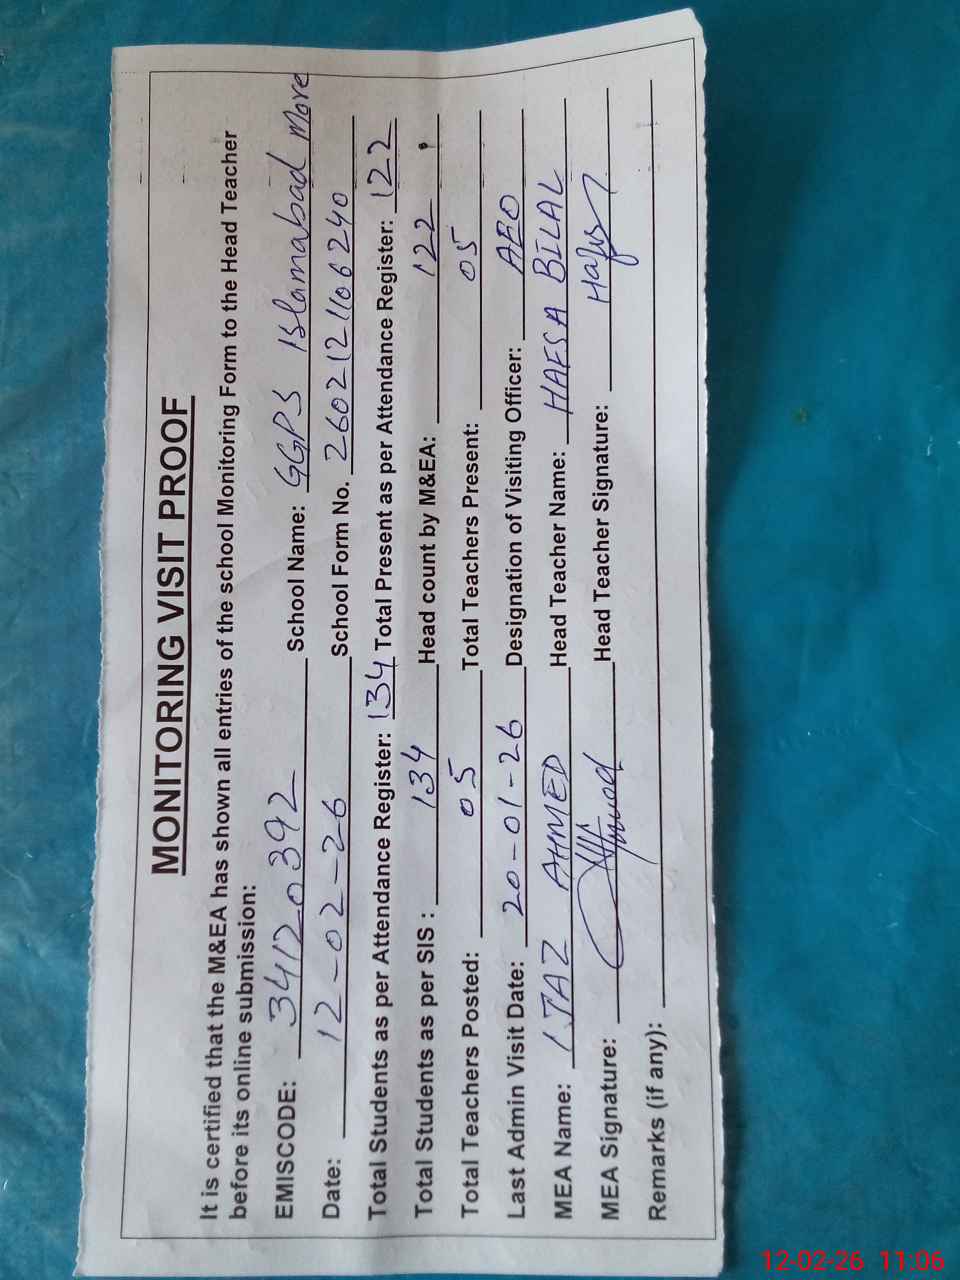 MONITORING VISIT PROOF
It is certified that the M&EA has shown all entries of the school Monitoring Form to the Head Teacher
before its online submission:
EMISCODE: 34120392 School Name: GGPS Islamabad More
Date: 12-02-26 School Form No. 2602121106240
Total Students as per Attendance Register: 134 Total Present as per Attendance Register: 122
Total Students as per SIS : 134 Head count by M&EA: 122
Total Teachers Posted: 05 Total Teachers Present: 05
Last Admin Visit Date: 20-01-26 Designation of Visiting Officer: AEO
MEA Name: IJAZ AHMED Head Teacher Name: HAFSA BILAL
MEA Signature: Head Teacher Signature:
Remarks (if any):
12-02-26 11:06